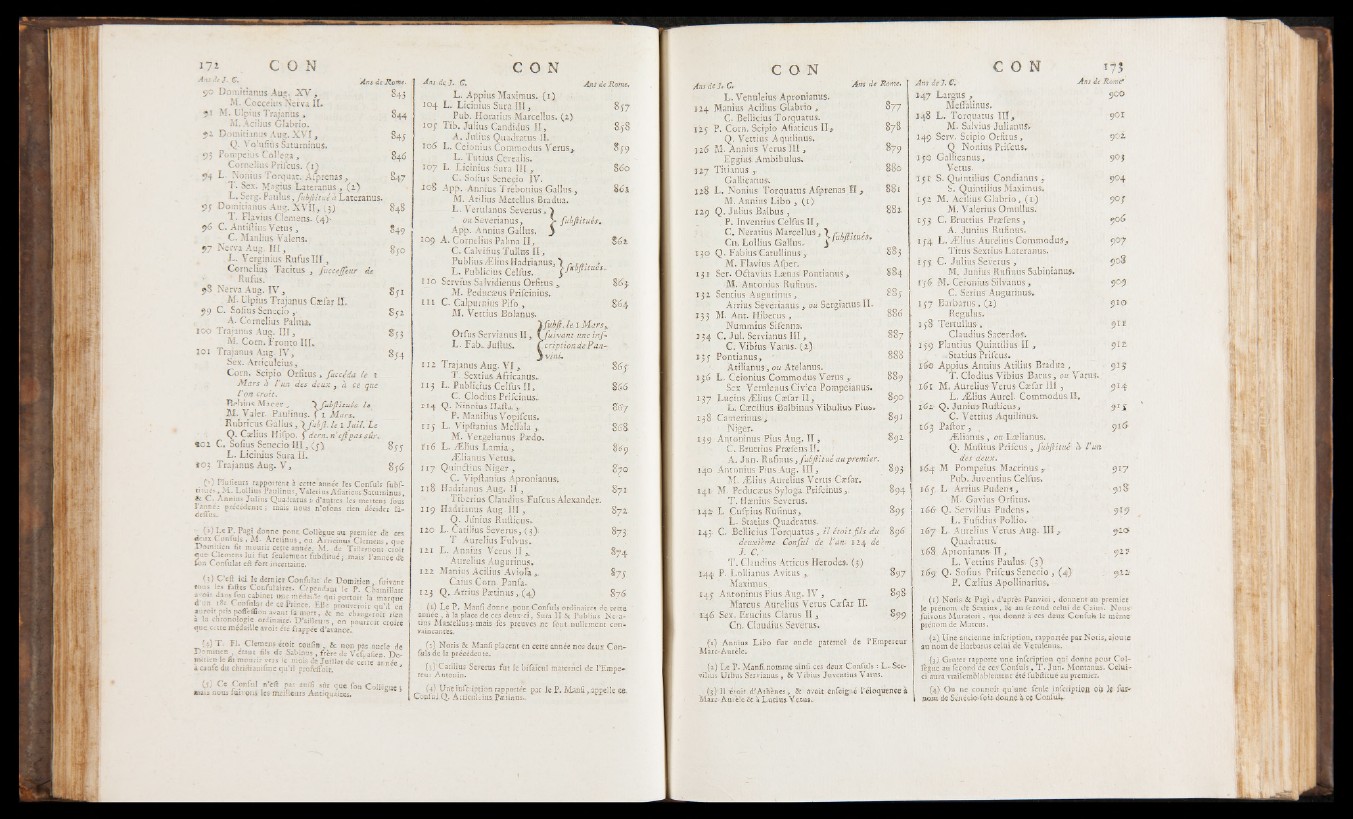 172 CON
Ans de J. C. Ans de Rome.
90 Domitianus Aug. XV, 843
M. Cocceius Nerva II.
91 M. Ulpius Trajanus, 844
M. Acilius Glabrio.
92 Domitianus Aug. XVI, 845
Q. Volusius Saturninus.
93 Pompeius Collega, 846
Cornelius Priscus. (1)
94 L. Nonius Torquat. Asprenas, 847
T. Sex. Magius Lateranus, (2)
L. Serg. Paulus, substitué à Lateranus.
95 Domitianus Aug. XVII, (3) 848
T. Flavius Clemens. (4)
96 C. Antistius Vetus, 849
C. Manlius Valens.
97 Nerva Aug. III, 850
L. Verginius Rufus III,
Cornelius Tacitus, successeur de
Rufus.
98 Nerva Aug. IV, 851
M. Ulpius Trajanus Cæsar II.
99 C. Sosius Senecio, 852
A. Cornelius Palma.
100 Trajanus Aug. III, 853
M. Corn. Fronto III.
101 Trajanus Aug. IV, 854
Sex. Articuleius,
Corn. Scipio Orfitus, succéda le 1
Mars à l'un des deux, à ce que
l'on croit.
Bebius Macer, } substitués le
M. Valer. Paulinus. } 1 Mars.
Rubricus Gallus, } subst. le 1 Juil. Le
Q. Cælius Hispo. } dern. n'est pas sûr.
102 C. Sosius Senecio III, (5) 855
L. Licinius Sura II.
103 Trajanus Aug. V, 856
(1) Plusieurs rapportent à cette année les Consuls subst-
itués, M. Lollius Paulinus, Valerius Asiaticus Saturninus,
& C. Annius Julius Quadratus : d'autres les mettent sous
l'année précédente ; mais nous n'osons rien décider là-
dessus.
(2) Le P. Pagi donne pour Collègue au premier de ces
deux Consuls, M. Aretinus, ou Arricinus Clemens, que
Domitien fit mourir cette année. M. de Tillemont croit
que Clemens lui fut seulement substitué ; mais l'année de
son Consulat est fort incertaine.
(3) C'est ici le dernier Consulat de Domitien, suivant
tous les fastes Consulaires. Cependant le P. Chamillart
avoit dans son cabinet une médaille qui portoit la marque
d'un 18e Consulat de ce Prince. Elle prouveroit qu'il en
auroit pris possession avant sa mort, & ne changeroit rien
à la chronologie ordinaire. D'ailleurs, on pourroit croire
que cette médaille avoit été frappée d'avance.
(4) T. Fl. Clemens étoit cousin, & non pas oncle de
Domitien, étant fils de Sabinus, frère de Vespasien. Do-
mitien le fit mourir vers le mois de Juillet de cette année,
à cause du christianisme qu'il professoit.
(5) Ce Consul n'est pas aussi sûr que son Collègue ;
mais nous suivons les meilleurs Antiquaires.
CON
Ans de J. C. Ans de Rome.
L. Appius Maximus. (1)
104 L. Licinius Sura III, 857
Pub. Horatius Marcellus. (2)
105 Tib. Julius Candidus II, 858
A. Julius Quadratus II.
106 L. Ceionius Commodus Verus, 859
L. Tutius Cerealis.
107 L. Licinius Sura III, 860
C. Sosius Senecio IV.
108 App. Annius Trebonius Gallus, 861
M. Atilius Metellus Bradua.
L. Verulanus Severus, }
ou Severianus, } substitués.
App. Annius Gallus. }
109 A. Cornelius Palma II, 862
C. Calvisius Tullus II,
Publius Ælius Hadrianus, }
L. Publicius Celsus. } substitués.
110 Servius Salvidienus Orfitus, 863
M. Peducæus Priscinus.
111 C. Calpurnius Piso, 864
M. Vettius Bolanus.
} subst. le 1 Mars,
Orfus Servianus II, } suivant une ins-
L. Fab. Justus. } cription de Pan-
} vini.
112 Trajanus Aug. VI, 865
T. Sextius Africanus.
113 L. Publicius Celsus II, 866
C. Clodius Priscinus.
114 Q. Ninnius Hasta, 867
P. Manilius Vopiscus.
115 L. Vipstanius Messala, 868
M. Vergelianus Pædo.
116 L. Ælius Lamia, 869
Ælianus Vetus.
117 Quinctius Niger, 870
C. Vipstanius Apronianus.
118 Hadrianus Aug. II, 871
Tiberius Claudius Fuscus Alexander.
119 Hadrianus Aug. III, 872
Q. Junius Rusticus.
120 L. Catilius Severus, (3) 873
T. Aurelius Fulvus.
121 L. Annius Verus II, 874
Aurelius Augurinus.
122 Manius Acilius Aviola, 875
Caius Corn. Pansa.
123 Q. Arrius Pætinus, (4) 876
(1) Le P. Mansi donne pour Consuls ordinaires de cette
année, à la place de ces deux-ci, Sura II & Publius Nera-
tius Marcellus ; mais ses preuves ne sont nullement con-
vaincantes.
(2) Noris & Mansi placent en cette année nos deux Con-
suls de la précédente.
(3) Catilius Severus fut le bisaïeul maternel de l'Empe-
reur Antonin.
(4) Une inscription rapportée par le P. Mansi, appelle ce
Consul Q. Articuleius Pætinus.
CON
Ans de J. C. Ans de Rome.
L. Venuleius Apronianus.
124 Manius Acilius Glabrio, 877
C. Bellicius Torquatus.
125 P. Corn. Scipio Asiaticus II, 878
Q. Vettius Aquilinus.
126 M. Annius Verus III, 879
Eggius Ambibulus.
127 Titianus, 880
Gallicanus.
128 L. Nonius Torquatus Asprenas II, 881
M. Annius Libo, (1)
129 Q. Julius Balbus, 882
P. Inventius Celsus II,
C. Neratius Marcellus, } substitués.
Cn. Lollius Gallus. }
130 Q. Fabius Catullinus, 883
M. Flavius Asper.
131 Ser. Octavius Lænas Pontianus, 884
M. Antonius Rufinus.
132 Sentius Augurinus, 885
Arrius Severianus, ou Sergianus II.
133 M. Ant. Hiberus, 886
Nummius Sisenna.
134 C. Jul. Servianus III, 887
C. Vibius Varus. (2)
135 Pontianus, 888
Atilianus, ou Atelanus.
136 L. Ceionius Commodus Verus, 889
Sex. Vetulenus Civica Pompeianus.
137 Lucius Ælius Cæsar II, 890
L. Cæcilius Balbinus Vibulius Pius.
138 Camerinus, 891
Niger.
139 Antoninus Pius Aug. II, 892
C. Bruttius Præsens II.
A. Jun. Rufinus, substitué au premier.
140 Antonius Pius Aug. III, 893
M. Ælius Aurelius Verus Cæsar.
141 M. Peducæus Syloga Priscinus, 894
T. Hænius Severus.
142 L. Cuspius Rufinus, 895
L. Statius Quadratus.
143 C. Bellicius Torquatus, il étoit fils du 896
deuxième Consul de l'an 124 de
J. C.
T. Claudius Atticus Herodes. (3)
144 P. Lollianus Avitus, 897
Maximus.
145 Antoninus Pius Aug. IV, 898
Marcus Aurelius Verus Cæsar II.
146 Sex. Erucius Clarus II, 899
Cn. Claudius Severus.
(1) Annius Libo fut oncle paternel de l'Empereur
Marc-Aurele.
(2) Le P. Mansi nomme ainsi ces deux Consuls : L. Ser-
vilius Urbus Servianus, & Vibius Juventius Varus.
(3) Il étoit d'Athènes, & avoit enseigné l'éloquence à
Marc-Aurele & à Lucius Verus.
CON 173
Ans de J. C. Ans de Rome.
147 Largus, 900
Messalinus.
148 L. Torquatus III, 901
M. Salvius Julianus.
149 Serv. Scipio Orfitus, 902
Q. Nonius Priscus.
150 Gallicanus, 903
Vetus.
151 S. Quintilius Condianus, 904
S. Quintilius Maximus.
152 M. Acilius Glabrio, (1) 905
M. Valerius Omullus.
153 C. Bruttius Præsens, 906
A. Junius Rufinus.
154 L. Ælius Aurelius Commodus, 907
Titus Sextius Lateranus.
155 C. Julius Severus, 908
M. Junius Rufinus Sabinianus.
156 M. Ceionius Silvanus, 909
C. Serius Augurinus.
157 Barbarus, (2) 910
Regulus.
158 Tertullus, 911
Claudius Sacerdos.
159 Plautius Quintilius II, 912
Statius Priscus.
160 Appius Annius Atilius Bradua, 913
T. Clodius Vibius Barus, ou Varus.
161 M. Aurelius Verus Cæsar III, 914
L. Ælius Aurel. Commodus II.
162 Q. Junius Rusticus, 915
C. Vettius Aquilinus.
163 Pastor, 916
Ælianus, ou Lælianus.
Q. Mustius Priscus, substitué à l'un
des deux.
164 M. Pompeius Macrinus, 917
Pub. Juventius Celsus.
165 L. Arrius Pudens, 918
M. Gavius Orfitus.
166 Q. Servilius Pudens, 919
L. Fusidius Pollio.
167 L. Aurelius Verus Aug. III, 920
Quadratus.
168 Apronianus II, 921
L. Vettius Paulus. (3)
169 Q. Sosius Priscus Senecio, (4) 922
P. Cælius Apollinarius.
(1) Noris & Pagi, d'après Panvini, donnent au premier
le prénom de Sextius, & au second celui de Caius. Nous
suivons Muratori, qui donne à ces deux Consuls le même
prénom de Marcus.
(2) Une ancienne inscription, rapportée par Noris, ajoute
au nom de Barbarus celui de Vetulenus.
(3) Gruter rapporte une inscription qui donne pour Col-
lègue au second de ces Consuls, T. Jun. Montanus. Celui-
ci aura vraisemblablement été substitué au premier.
(4) On ne connoît qu'une seule inscription où le sur-
nom de Senecio soit donné à ce Consul.